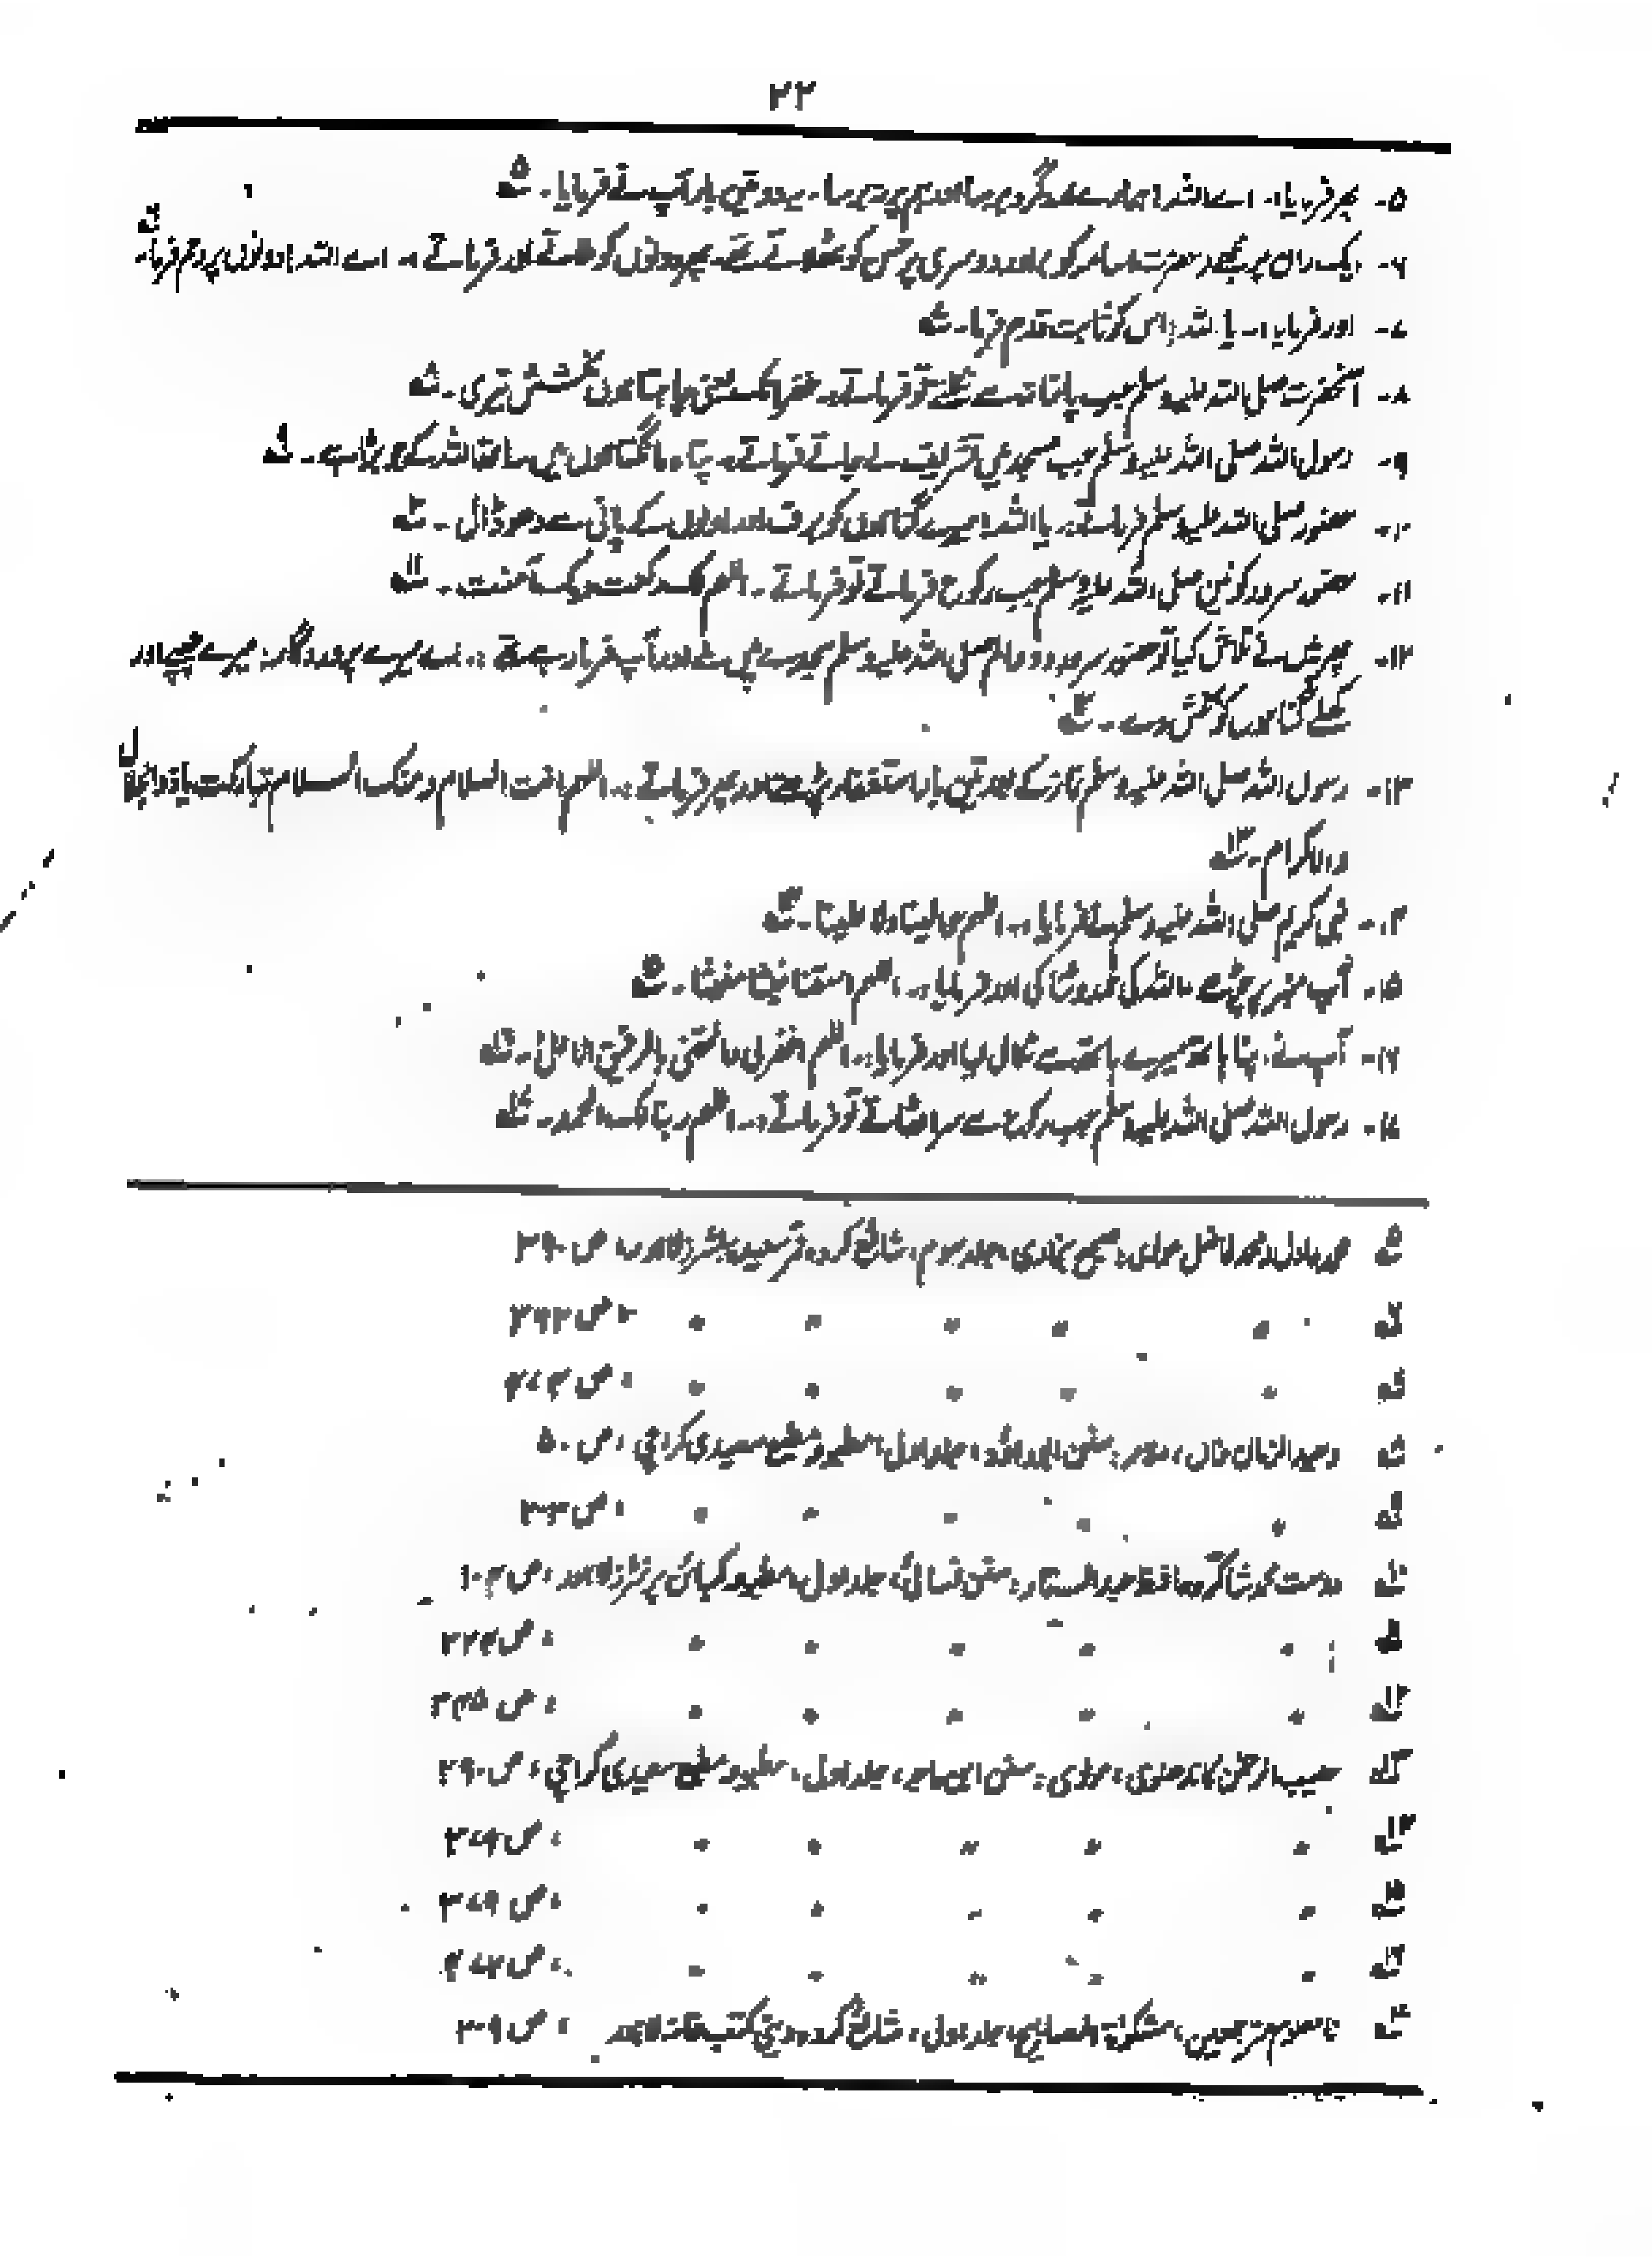 ۲۲
۵۔ پھر فرمایا:۔ اے اللہ! ہمارے گرد برسا اور ہم پر نہ برسا۔ یہ دو تین بار آپ نے فرمایا۔ ۵ے
۶۔ ایک ران پر مجھے حضرت اسامہ کو اور دوسری پر حسن کو بٹھاتے تھے۔ پھر دونوں کو ملاتے اور فرماتے:۔ اے اللہ! دونوں پر رحم فرما۔ ۶ے
۷۔ اور فرمایا:۔ یا اللہ! اس کو ثابت قدم فرما۔ ۷ے
۸۔ آنحضرت صلی اللہ علیہ وسلم جب پاخانہ سے نکلتے تو فرماتے:۔ غفرانک یعنی چاہتا ہوں بخشش تیری۔ ۸ے
۹۔ رسول اللہ صلی اللہ علیہ وسلم جب مسجد میں تشریف لے جاتے فرماتے:۔ پناہ مانگتا ہوں میں ساتھ اللہ کے جو بڑا ہے۔ ۹ے
۱۰۔ حضور صلی اللہ علیہ وسلم فرماتے:۔ یا اللہ! میرے گناہوں کو برف اور اولوں کے پانی سے دھو ڈال۔ ۱۰ے
۱۱۔ حضور سرور کونین صلی اللہ علیہ وسلم جب رکوع فرماتے تو فرماتے:۔ اللھم لک رکعت وبک آمنت۔ ۱۱ے
۱۲۔ پھر میں نے تلاش کیا تو حضور سرور دو عالم صلی اللہ علیہ وسلم سجدے میں تھے اور آپ فرما رہے تھے:۔ اے میرے پروردگار! میرے چھپے اور
کھلے گناہوں کو بخش دے۔ ۱۲ے
۱۳۔ رسول اللہ صلی اللہ علیہ وسلم نماز کے بعد تین بار استغفار پڑھتے اور پھر فرماتے:۔ اللھم انت السلام ومنک السلام تبارکت یا ذوالجلال
والاکرام۔ ۱۳ے
۱۴۔ نبی کریم صلی اللہ علیہ وسلم نے فرمایا:۔ اللھم حوالینا ولا علینا۔ ۱۴ے
۱۵۔ آپ منبر پر چڑھے۔ اللہ کی حمد و ثنا کی اور فرمایا:۔ اللھم اسقنا غیثا مغیثا۔ ۱۵ے
۱۶۔ آپ نے اپنا ہاتھ میرے ہاتھ سے نکال لیا اور فرمایا:۔ اللھم اغفرلی والحقنی بالرفیق الاعلیٰ۔ ۱۶ے
۱۷۔ رسول اللہ صلی اللہ علیہ وسلم جب رکوع سے سر اٹھاتے تو فرماتے:۔ اللھم ربنا لک الحمد۔ ۱۷ے
۵ے محمد عادل و محمد فاضل مولوی: صحیح بخاری، جلد سوم، شائع کردہ سعید پبلشرز لاہور، ص ۳۹۰
۶ے 〃 〃 〃 〃 〃 ، ص ۳۶۲
۷ے 〃 〃 〃 〃 〃 ، ص ۴۷۴
۸ے وحید الزمان خاں، علامہ: سنن ابوداؤد، جلد اول، مطبوعہ مطبع سعیدی کراچی، ص ۵۰
۹ے 〃 〃 〃 〃 〃 ، ص ۲۰۳
۱۰ے دوست محمد شاکر و حافظ عبدالستار: سنن نسائی، جلد اول، مطبوعہ کمبائن پرنٹرز لاہور، ص ۱۰۴
۱۱ے 〃 〃 〃 〃 〃 ، ص ۲۲۴
۱۲ے 〃 〃 〃 〃 〃 ، ص ۳۴۵
۱۳ے حبیب الرحمٰن کاندھلوی، مولوی: سنن ابن ماجہ، جلد اول، مطبوعہ مطبع سعیدی کراچی، ص ۲۹۰
۱۴ے 〃 〃 〃 〃 〃 ، ص ۳۷۹
۱۵ے 〃 〃 〃 〃 〃 ، ص ۳۷۹
۱۶ے 〃 〃 〃 〃 〃 ، ص ۴۷۲
۱۷ے نامعلوم مترجمین، مشکوٰۃ المصابیح، جلد اول، شائع کردہ دینی کتب خانہ لاہور، ص ۳۰۹